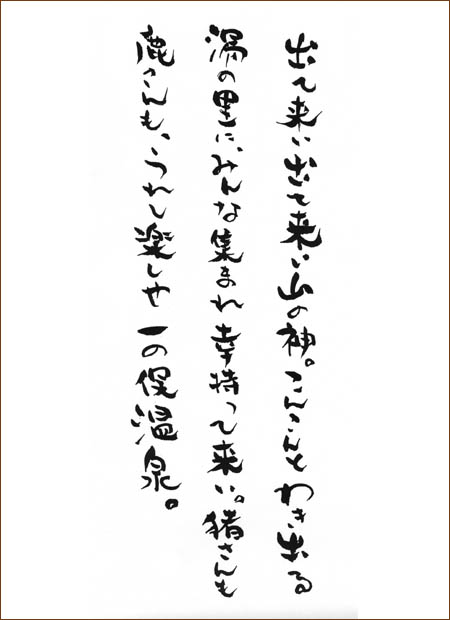 出て来い出て来い山の神。こんこんとわき出る
湯の里に、みんな集まれ幸持って来い。猪さんも
鹿さんも、うれし楽しや一の俣温泉。